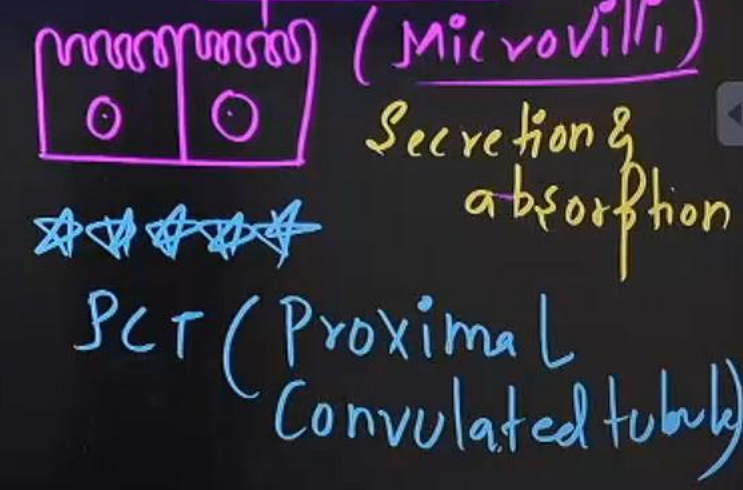 (Microvilli)
Secretion &
absorption
PCT (Proximal
Convulated tubule)